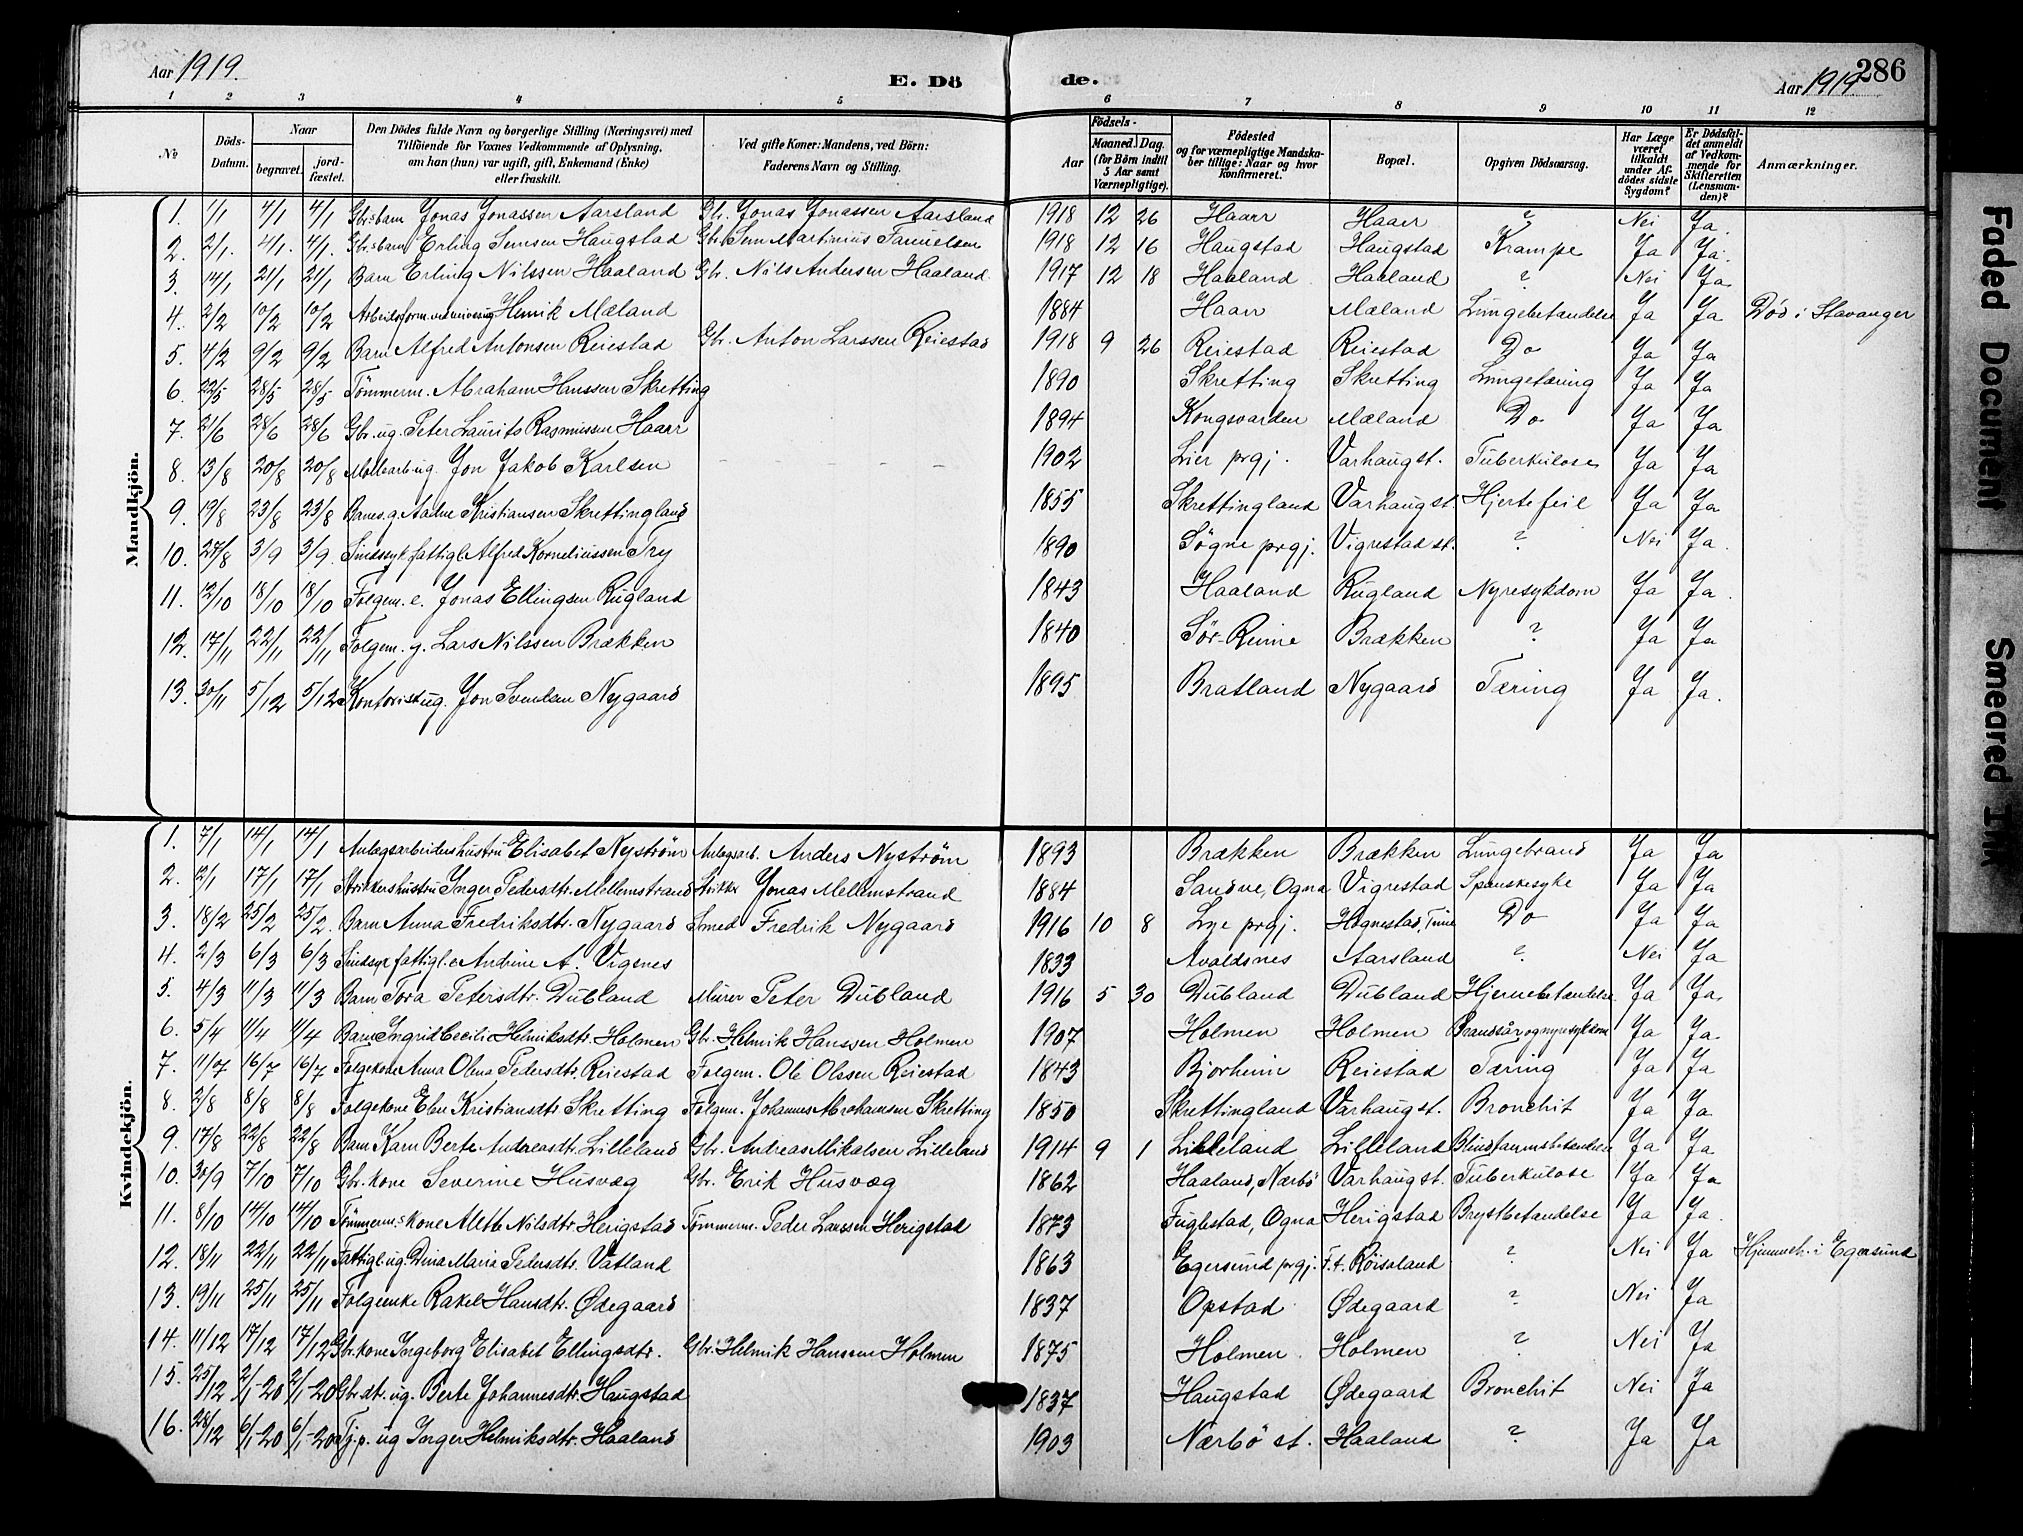 Aar 1919. E. Dö de. Aar 1919 286
1 2 3 4 5 6 7 8 9 10 11 12
No
Döds-Datum.
Naar
begravet.
jord-fæstet.
Den Dödes fulde Navn og borgerlige Stilling (Næringsvei) med
Tilföiende for Voxnes Vedkommende af Oplysning,
om han (hun) var ugift, gift, Enkemand (Enke)
eller fraskilt.
Ved gifte Koner: Mandens, ved Börn:
Faderens Navn og Stilling.
Födsels-
Aar
Maaned. Dag.
(for Börn indtil
5 Aar samt
Værnepligtige).
Födested
og for værnepligtige Mandska-
ber tillige: Naar og hvor
konfirmeret.
Bopæl.
Opgiven Dödsaarsag.
Har Læge
været
tilkaldt
under Af-
dödes sidste
Sygdom?
Er Dödsfal-
det anmeldt
af Vedkom-
mende for
Skifteretten
(Lensman-
den)?
Anmærkninger.
Mandkjön.
1. 1/1 4/1 4/1 Gbr.barn Jonas Jonassen Aarsland Gbr. Jonas Jonassen Aarsland 1918 12 26 Haarr Haarr ? Nei Ja.
2. 2/1. 4/1. 4/1. Gbr.barn Erling Semsen Haugstad Gbr. Sem Martinius Tanielsen 1918 12 16 Haugstad Haugstad Krampe Ja Ja.
3. 14/1 21/1 21/1 Barn Erling Nilssen Haaland Gbr. Nils Andersen Haaland. 1917 12 18 Haaland Haaland ? Nei Ja.
4. 2/2 10/2 10/2 Henrik Mæland 1884 Haarr Mæland Lungebetændelse Ja Ja Död i Stavanger
5. 4/2 9/2 9/2 Barn Alfred Antonsen Reiestad Gbr. Anton Larssen Reiestad 1918 9 26 Reiestad Reiestad Do Ja Ja
6. 22/5 28/5 28/5 Tömmerm. Abraham Hanssen Skretting 1890 Skretting Skretting Lungetæring Ja Ja
7. 21/6 28/6 28/6 Gbr. ug. Peter Laurits Rasmussen Haarr 1894 Kongsvarden Mæland Do Ja Ja
8. 13/8 20/8 20/8 ug. Jon Jakob Karlsen 1902 Lier prgj. Varhaugst. Tuberkulose Ja Ja
9. 19/8 23/8 23/8 g. Aadne Kristiansen Skrettingland 1855 Skrettingland Varhaugst. Hjertefeil Ja Ja
10. 27/8 3/9 3/9. Sindssyk fattigl. Alfred Korneliussen Try 1890 Søgne prgj. Vigrestad st. ? Nei Ja.
11. 13/10 18/10 18/10 Folgem. e. Jonas Ellingsen Rugland 1843 Haaland Rugland Nyresykdom Ja Ja.
12. 17/11 22/11 22/11 Folgem. g. Lars Nilssen Brækken 1840 Sör-Reime Brækken ? Ja Ja
13. 30/11 5/12 5/12 Kontorist ug. Jon Svendsen Nygaard 1895 Bratland Nygaard Tæring Ja Ja.
Kvindekjön.
1. 7/1 14/1 14/1 Anlegsarbeidershustru Elisabet Nyström Anlegsarb. Anders Nyström 1893 Brækken Brækken Lungebrand Ja Ja
2. 12/1 17/1 17/1 Strikkershustru Inger Pedersdtr. Mellemstrand Strikker Jonas Mellemstrand 1884 Sandve, Ogna Vigrestad Spanskesyke Ja Ja
3. 18/2 25/2 25/2. Barn Anna Fredriksdtr. Nygaard Smed Fredrik Nygaard 1916 10 8 Lye prgj. Hognestad, Time Do Ja Ja
4. 2/3 6/3 6/3 Sindssyk fattigl. e. Andrine A. Vignes 1833 Avaldsnes Aarsland ? Nei Ja
5. 4/3 11/3 11/3 Barn Tora Petersdtr. Dubland Murer Peter Dubland 1916 5 30 Dubland Dubland Hjernebetændelse Ja Ja.
6. 5/4 11/4 11/4 Barn Ingrid Cecilie Helmiksdtr. Holmen Gbr. Helmik Hanssen Holmen 1907 Holmen Holmen Brandsår og nyresykdom Ja Ja.
7. 11/7 16/7 16/7 Folgekone Anna Olena Pedersdtr. Reiestad Folgem. Ole Olesen Reiestad 1843 Bjorheim Reiestad Tæring Ja Ja
8. 2/8 8/8 8/8 Folgekone Elen Kristiansdtr. Skretting Folgem. Johannes Abrahamsen Skretting 1850 Skrettingland Varhaugst. Bronchit Ja Ja
9. 17/8 22/8 22/8 Barn Karn Berte Andreasdtr. Lilleland Gbr. Andreas Mikalsen Lilleland 1914 9 1 Lilleland Lilleland Blindtarmsbetændelse Ja Ja
10. 30/9 7/10 7/10 Gbr. kone Severine Husvæg Gbr. Erik Husvæg 1862 Haaland, Nærbö Varhaugst. Tuberkulose Ja Ja
11. 8/10 14/10 14/10 Tömmerm.s kone Alette Nilsdtr. Herigstad Tömmerm. Peder Larssen Herigstad 1873 Fuglestad, Ogna Herigstad Brystbetændelse Ja Ja.
12. 18/11 22/11 22/11 Fattigl. ug. Dina Maria Pedersdtr. Vatland 1863 Egersund prgj. F.t. Röisaland ? Nei Ja Hjemmeh. i Egersund
13. 19/11 25/11 25/11 Folgeenke Rakel Hansdtr. Ødegaard 1837 Opstad Ødegaard ? Nei Ja
14. 11/12 17/12 17/12 Gbr. kone Ingeborg Elisabet Ellingsdtr. Gbr. Helmik Hanssen Holmen 1875 Holmen Holmen ? Nei Ja
15. 25/12 2/1-20 2/1-20 Gbr.dtr. ug. Berte Johannesdtr. Haugstad 1837 Haugstad Ødegaard Bronchit Nei Ja
16. 28/12 6/1-20 6/1-20 Tj.p. ug Inger Helmiksdtr. Haaland 1903 Nærbö st. Haaland ? Ja Ja
Faded Document
Smeared Ink